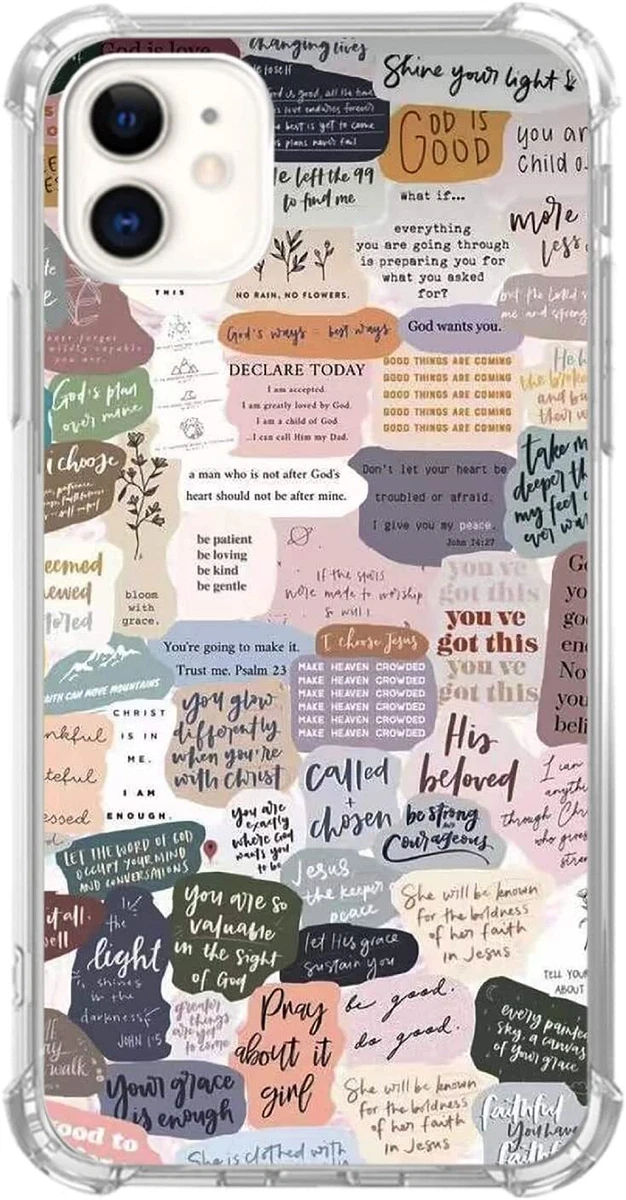 God is love
changing lives
Shine your light
is good, all the time
love endures forever
best is yet to come
plans never fail
GOD IS
GOOD
you ar
child o
left the 99
to find me
what if...
everything
you are going through
is preparing you for
what you asked
for?
more
less
THIS
NO RAIN, NO FLOWERS.
but the Lord
me and streng
never forget
wildly capable
you are.
God's ways = best ways
God wants you.
DECLARE TODAY
I am accepted.
I am greatly loved by God.
I am a child of God
...I can call Him my Dad.
GOOD THINGS ARE COMING
GOOD THINGS ARE COMING
GOOD THINGS ARE COMING
GOOD THINGS ARE COMING
GOOD THINGS ARE COMING
He h
the broke
and bi
their w
God's plan
over mine
i choose
take m
deeper th
my feet c
ever wa
a man who is not after God's
heart should not be after mine.
Don't let your heart be
troubled or afraid.
I give you my peace.
John 14:27
be patient
be loving
be kind
be gentle
If the stars
were made to worship
so will I.
bloom
with
grace.
eemed
ewed
tored
you've
got this
you ve
got this
you ve
got this
Go
yo
go
en
No
you
beli
You're going to make it.
Trust me. Psalm 23
I choose Jesus
MAKE HEAVEN CROWDED
MAKE HEAVEN CROWDED
MAKE HEAVEN CROWDED
MAKE HEAVEN CROWDED
MAKE HEAVEN CROWDED
MAKE HEAVEN CROWDED
AITH CAN MOVE MOUNTAINS
you glow
differently
when you're
with Christ
CHRIST
IS IN
ME.
I AM
ENOUGH.
nkful
teful
essed
His
beloved
called
+
chosen
I can
anythi
through Chr
who gives
stren
you are
exactly
where God
wants you
to be
be strong
AND
Courageous
LET THE WORD OF GOD
OCCUPY YOUR MIND
AND CONVERSATIONS
Jesus,
the keeper
peace
She will be known
for the boldness
of her faith
in Jesus
you are so
valuable
in the sight
of God
it all.
ell
the
light
shines
in the
darkness
JOHN 1:5
let His grace
sustain you
TELL YOUR
ABOUT
greater
things
are yet
to come
Pray
about it
girl
be good.
do good.
every painted
sky, a canvas
of your grace
walk
your grace
is enough
She will be known
for the boldness
of her faith
in Jesus
faithful
You have
faithful
ood to
She is clothed with